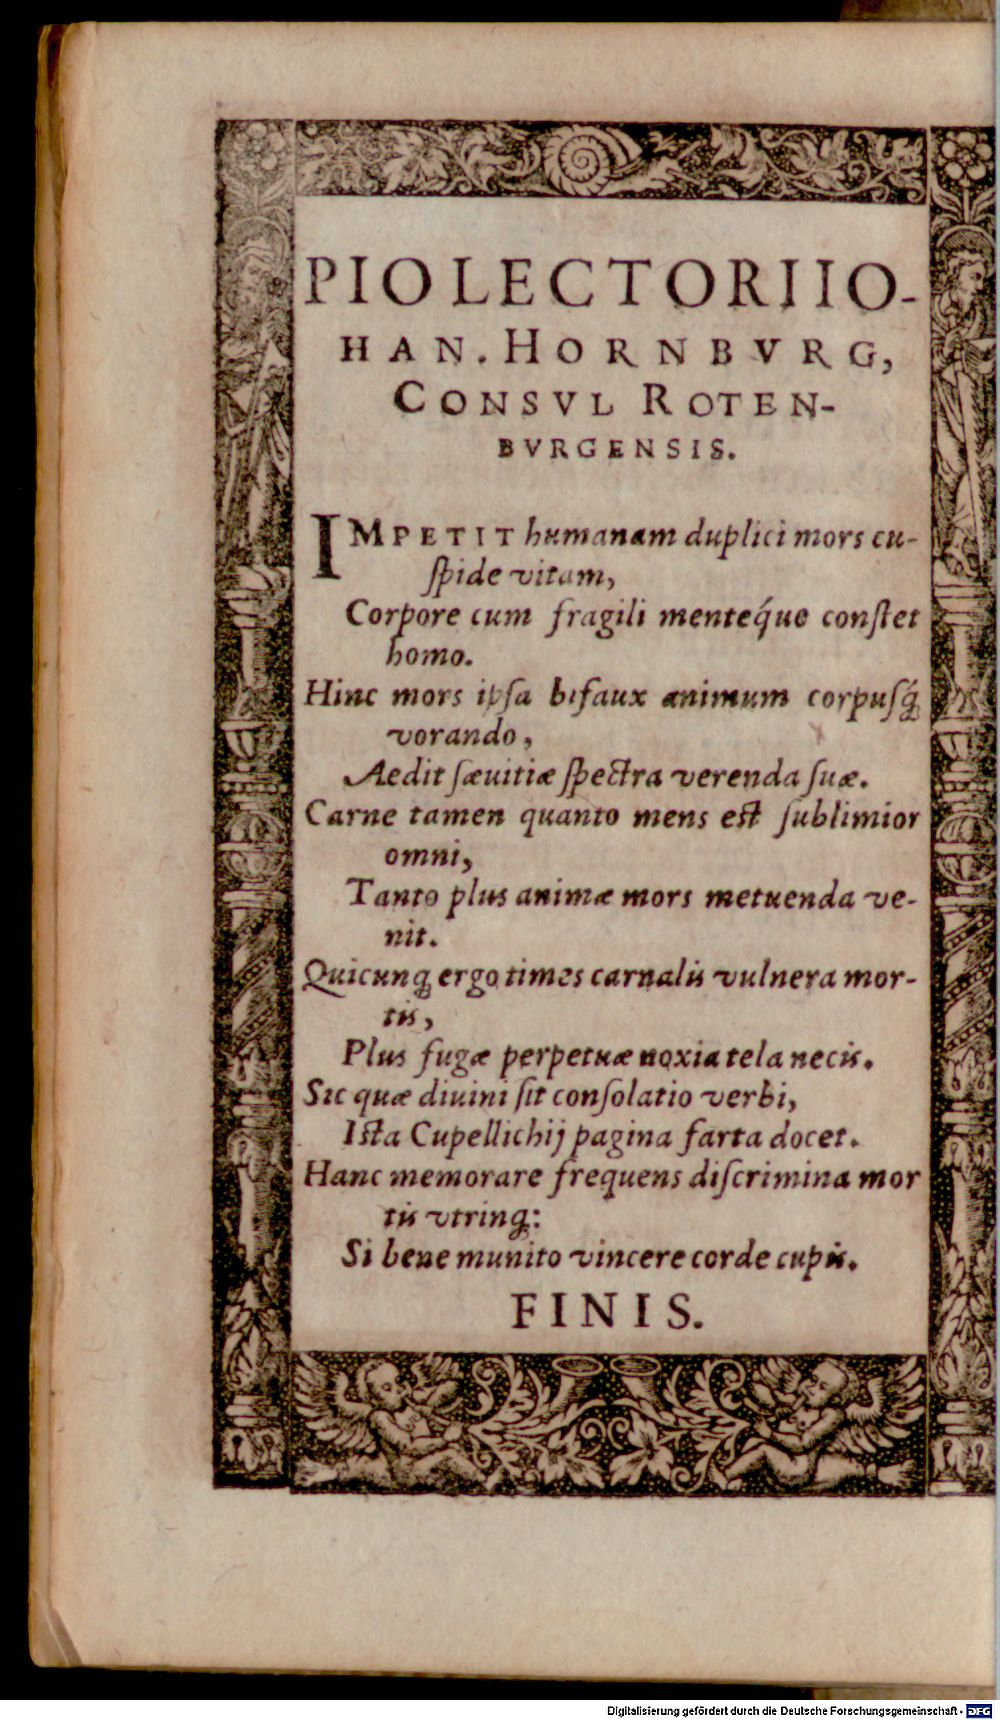 PIO LECTORI IO-
HAN. HORNBVRG,
CONSVL ROTEN-
BVRGENSIS.
IMPETIT humanam duplici mors cu-
ſpide vitam,
Corpore cum fragili mentéque conſtet
homo.
Hinc mors ipſa bifaux animum corpuſq́;
vorando,
Aedit ſæuitiæ ſpectra verenda ſuæ.
Carne tamen quanto mens eſt ſublimior
omni,
Tanto plus animæ mors metuenda ve-
nit.
Quicunq; ergo times carnalis vulnera mor-
tis,
Plus fugæ perpetuæ noxia tela necis.
Sic quæ diuini ſit conſolatio verbi,
Iſta Cupellichij pagina farta docet.
Hanc memorare frequens diſcrimina mor
tis vtrinq;:
Si bene munito vincere corde cupis.
FINIS.
Digitalisierung gefördert durch die Deutsche Forschungsgemeinschaft - DFG